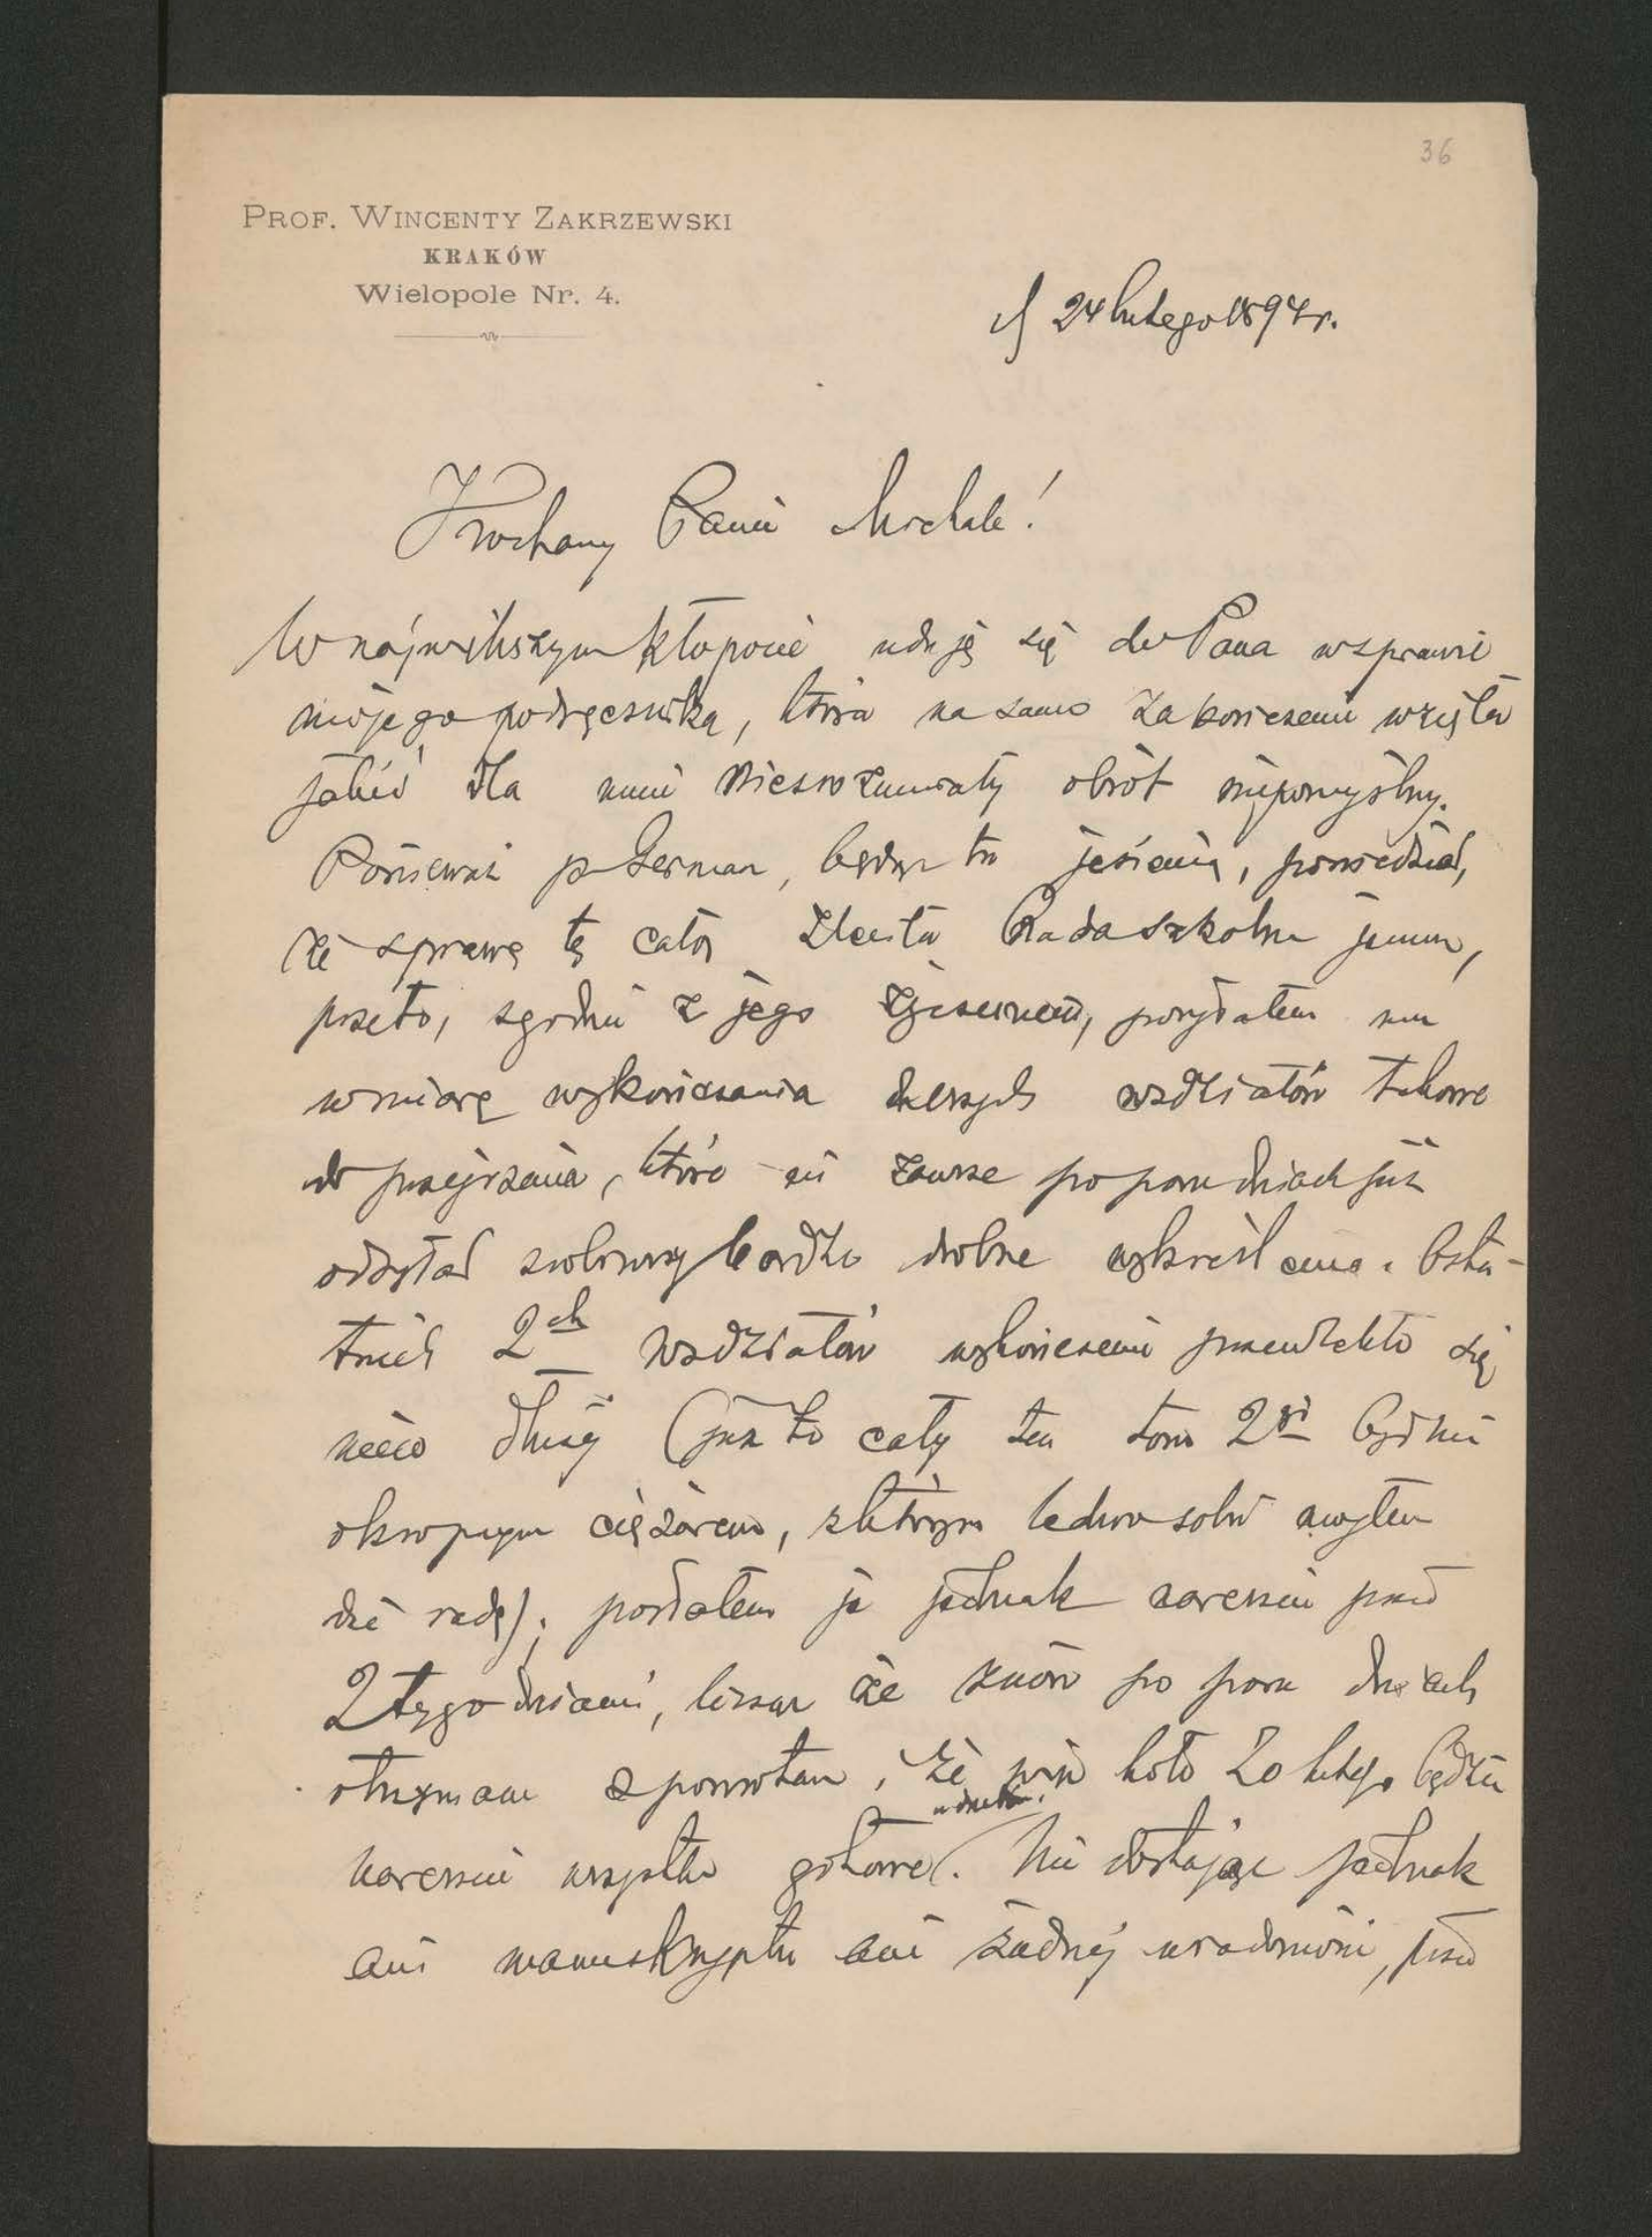 36
PROF. WINCENTY ZAKRZEWSKI
KRAKÓW
Wielopole Nr. 4.
24 lutego 1894 r.
Kochany Panie Michale!
W największym kłopocie udaję się do Pana w sprawie
mojego podręcznika, która na samo zakończenie wzięła
jakiś dla mnie niezrozumiały obrót niepomyślny.
Ponieważ p. German, będąc tu jesienią, powiedział,
że sprawę tę całą zleciła Rada szkolna jemu,
przeto, zgodnie z jego życzeniem, posyłałem mu
w miarę wykończania dalszych rozdziałów takowe
do przejrzenia, które mi zawsze po paru dniach już
odsyłał zrobiwszy bardzo drobne wykreślenia. Osta-
tnich 2ch rozdziałów wykończenie przewlekło się
nieco dłużej (już to cały ten tom 2gi był mi
okropnym ciężarem, z którym ledwo sobie mogłem
dać radę); posłałem je jednak nareszcie przed
2 tygodniami, licząc że znów po paru dniach
otrzymam z powrotem, i że więc koło 20 lutego będzie
nareszcie wszystko gotowe. Nie dostając jednak
ani manuskryptu ani żadnej wiadomości, przed